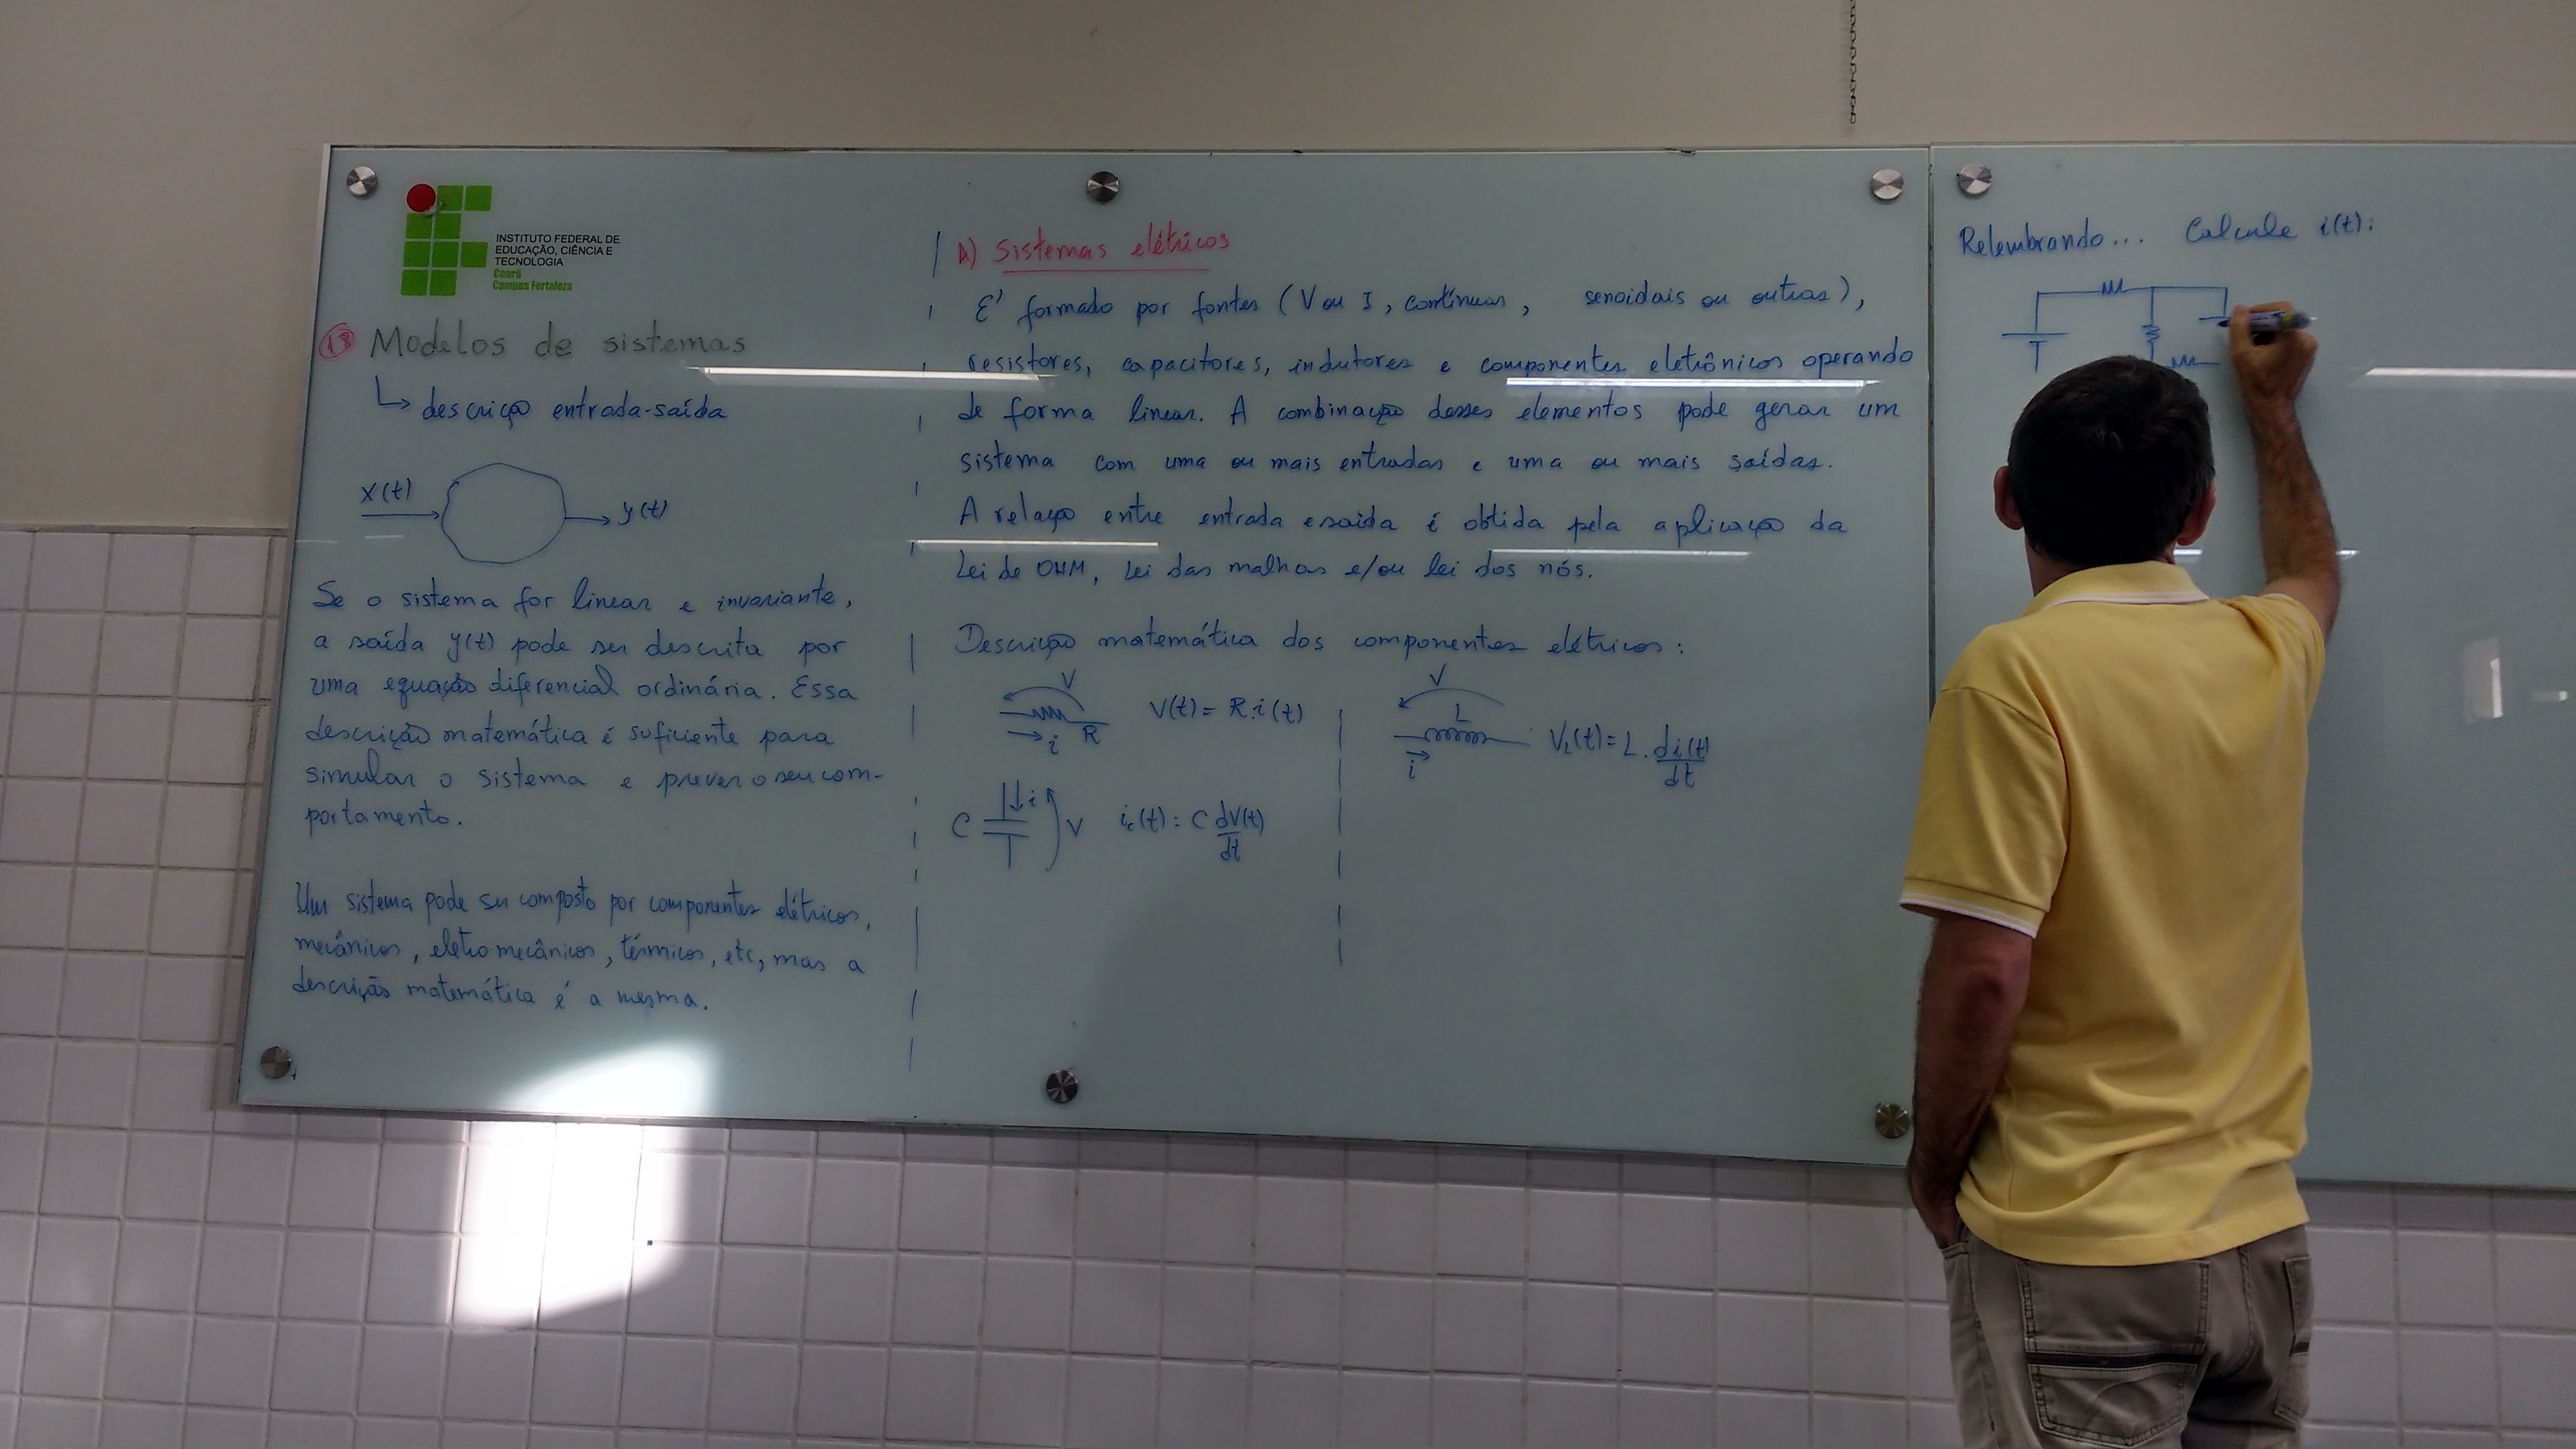 INSTITUTO FEDERAL DE
EDUCAÇÃO, CIÊNCIA E
TECNOLOGIA
Ceará
Campus Fortaleza
Modelos de sistemas
↳ descrição entrada-saída
x(t)
y(t)
Se o sistema for linear e invariante,
a saída y(t) pode ser descrita por
uma equação diferencial ordinária. Essa
descrição matemática é suficiente para
simular o sistema e prever o seu com-
portamento.
Um sistema pode ser composto por componentes elétricos,
mecânicos, eletromecânicos, térmicos, etc, mas a
descrição matemática é a mesma.
A) Sistemas elétricos
É formado por fontes (V ou I, contínuas, senoidais ou outras),
resistores, capacitores, indutores e componentes eletrônicos operando
de forma linear. A combinação desses elementos pode gerar um
sistema com uma ou mais entradas e uma ou mais saídas.
A relação entre entrada e saída é obtida pela aplicação da
Lei de OHM, Lei das malhas e/ou lei dos nós.
Descrição matemática dos componentes elétricos:
V
i R
V(t) = R.i(t)
V
L
i
VL(t) = L. di(t)/dt
C i V
ic(t) = C dV(t)/dt
Relembrando... Calcule i(t):